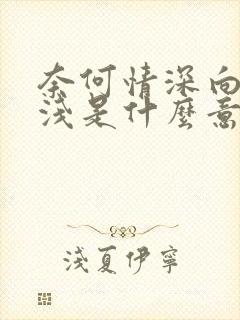 奈何情深向
淺是什麼意
淺夏伊寧